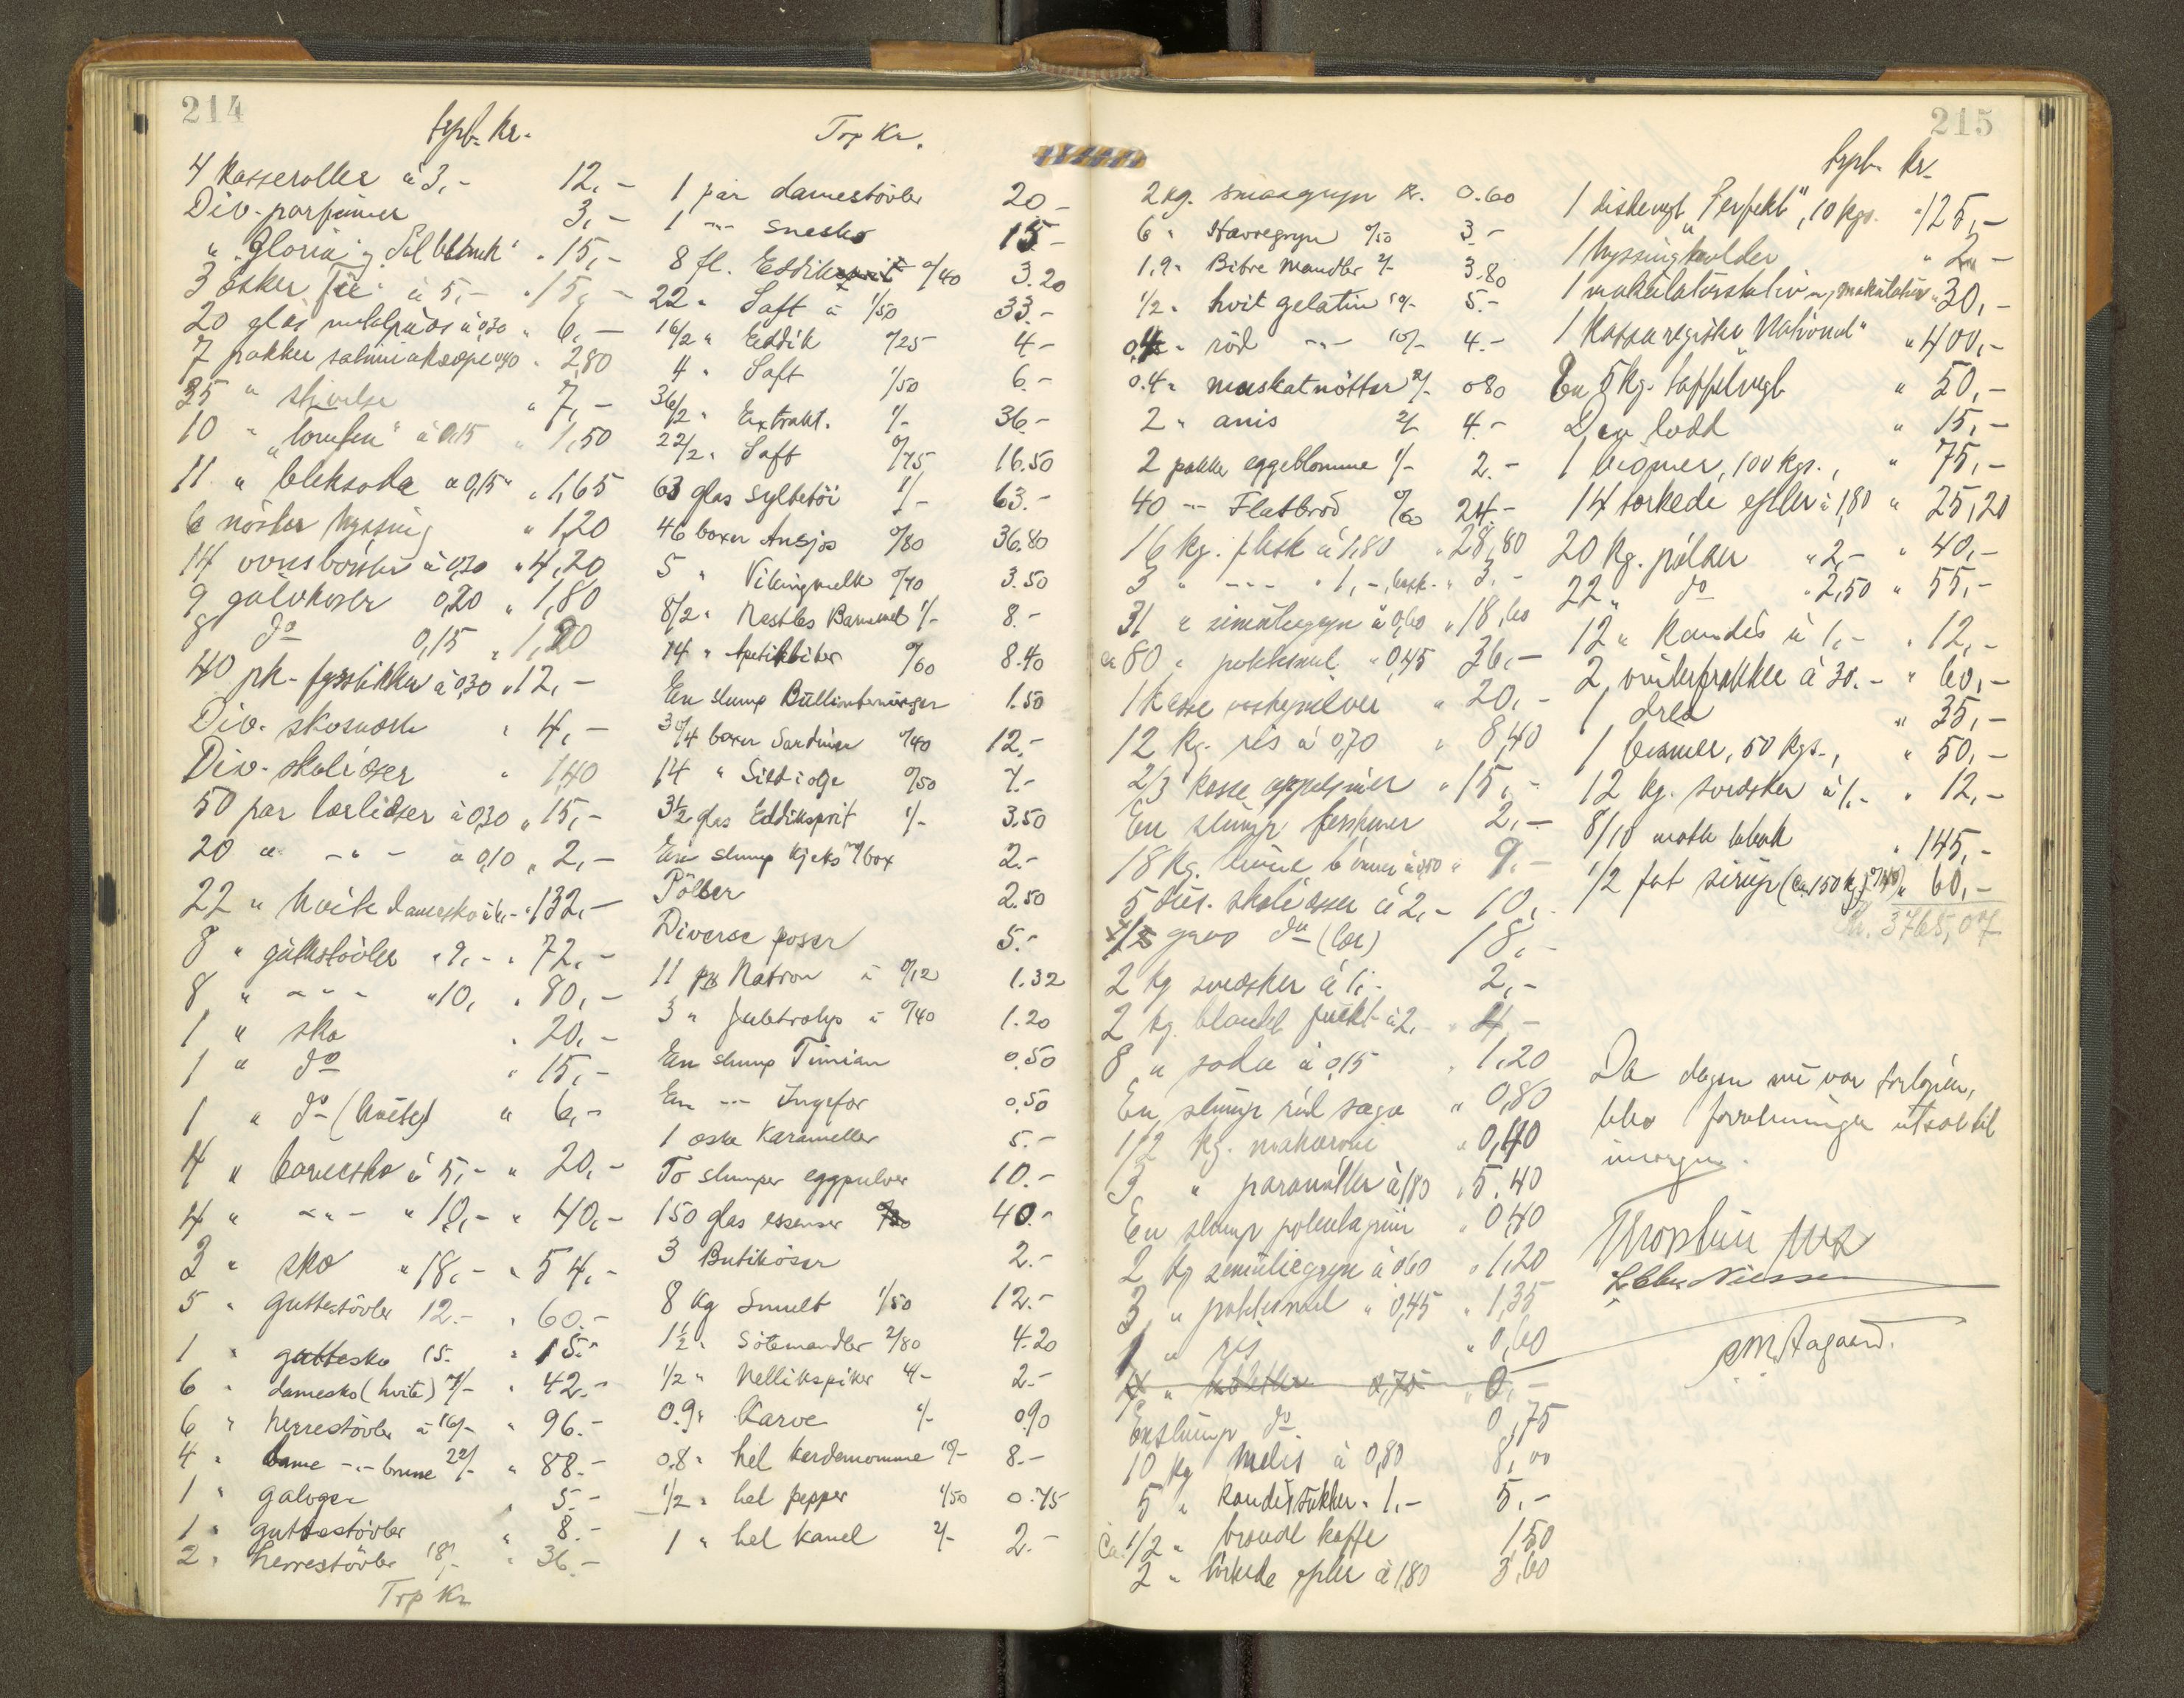 214
Trp. Kr.
4 Kasseroller à 3,- 12,-
Div. parfumer 3,-
" "Gloria" og 15,-
3 esker à 5,- " 15,-
20 glas à 0,30 " 6,-
7 pakker salmiaksæpe 0,40 " 2,80
35 " stivelse " 7,-
10 " à 0,15 " 1,50
11 " bleksoda à 0,15 " 1,65
6 nöster hyssing " 1,20
14 ovnsbörster à 0,30 " 4,20
9 gulvkoster 0,20 " 1,80
8 do 0,15 " 1,20
40 pk. fyrstikker à 0,30 " 12,-
Div. skosverte " 4,-
Div. skolisser " 1,40
50 par lærlisser à 0,30 " 15,-
20 " -"- à 0,10 " 2,-
22 " hvite damesko à 6,- " 132,-
8 " guttestövler " 9,- " 72,-
8 " -"- " 10, " 80,-
1 " sko " 20,-
1 " do " 15,-
1 " do (hvite) " 6,-
4 " barnesko à 5,- " 20,-
4 " -"- " 10,- " 40,-
3 " sko " 18,- " 54,-
5 " guttestövler 12.- " 60.-
1 " guttesko 15.- " 15.-
6 " damesko (hvite) 7/- " 42.-
6 " herrestövler à 16/- " 96.-
4 " dame -"- brune 22/- " 88.-
1 " galoger " 5.-
1 " guttestövler " 8.-
2 " herrestövler 18/- " 36.-
Trp Kr
Trp Kr.
1 par damestövler 20-
1 -"- snesko 15-
8 fl. Eddik 0/40 3.20
22 " Saft à 1/50 33.-
16/2 " Eddik 0/25 4.-
4 " Saft 1/50 6.-
36/2 " Extrakt. 1/- 36.-
22/2 " Saft 0/75 16.50
63 glas syltetöi 1/- 63.-
46 boxer Ansjos 0/80 36.80
5 " Vikingmelk 0/70 3.50
8/2 " Nestles Barnemel 1/- 8.-
14 " Apetitbiter 0/60 8.40
En slump Bullinterninger 1.50
30/4 boxer Sardiner 0/40 12.-
14 " Sild i olje 0/50 7.-
3½ glas Eddiksprit 1/- 3.50
En slump kjeks m/box 2.-
Pölser 2.50
Diverse poser 5.-
11 pk Natron à 0/12 1.32
3 " à 0/40 1.20
En slump Timian 0.50
En -"- Ingefær 0.50
1 eske Karameller 5.-
To slumper eggpulver 10.-
150 glas essenser 40.-
3 Butiköser 2.-
8 kg Smult 1/50 12.-
1½ " Sötemandler 2/80 4.20
1/2 " Nellikspiker 4/- 2.-
0.9 " Karve 1/- 0.90
0.8 " hel kardemomme 10/- 8.-
1/2 " hel pepper 1/50 0.75
1 " hel kanel 2/- 2.-
215
2 kg. smaagryn Kr. 0.60
6 " Havregryn 0/50 3.-
1.9 " Bitre Mandler 2/- 3.80
1/2 " hvit gelatin 10/- 5.-
0.4 " röd -"- 10/- 4.-
0.4 " muskatnötter 2/- 0.80
2 " anis 2/- 4.-
2 pakker eggeblomme 1/- 2.-
40 -"- Flatbröd 0/60 24.-
16 kg. flesk à 1,80 " 28,80
3 " -"- " 1,- " 3.-
31 " semuliegryn à 0,60 " 18,60
ca 80 " potetmel " 0,45 36,-
1 kasse vaskepulver " 20,-
12 kg. ris à 0,70 " 8,40
2/3 kasse appelsiner " 15,-
En slump 2,-
18 kg. bönner à 0,50 " 9.-
5 dus. skolisser à 2,- 10,-
gros do (lær) 18,-
2 kg svedsker à 1.- 2,-
2 kg. blandet frukt à 2,- 4,-
8 " soda à 0,15 " 1,20
En slump röd sago " 0,80
1/2 kg. makaroni " 0,40
3 " paranötter à 1,80 " 5.40
En slump " 0,40
2 kg semuliegryn à 0,60 " 1,20
3 " potetmel " 0,45 " 1,35
1 " ris " 0,60
En slump do 0,75
10 kg melis à 0,80 8,00
5 " kandissukker " 1,- 5,-
ca. 1/2 " brendt kaffe 1,50
2 " törkede epler à 1,80 3,60
Trp. Kr.
1 diskevegt "Perfekt", 10 kgs. " 125,-
1 hyssingholder " 2,-
1 makulaturstativ m/ makulatur " 30,-
1 Kassaregister "National" " 400,-
En 5 kg. taffelvegt " 50,-
Div lodd " 15,-
1 bismer, 100 kgs., " 75,-
14 törkede epler à 1,80 " 25,20
20 kg. pölser " 2,- " 40,-
22 " do " 2,50 " 55,-
12 " Kandis à 1,- " 12,-
2 vinterfrakker à 30.- " 60,-
1 dress " 35,-
1 bismer, 50 kgs., " 50,-
12 kg. svedsker à 1,- " 12,-
8/10 tobak " 145,-
1/2 fat sirup (ca. 150 kg) " 60,-
Kr. 3765,07
Da dagen nu var forlöpen,
blev forretningen utsat til
imorgen.
Nilssen
Aagaard.